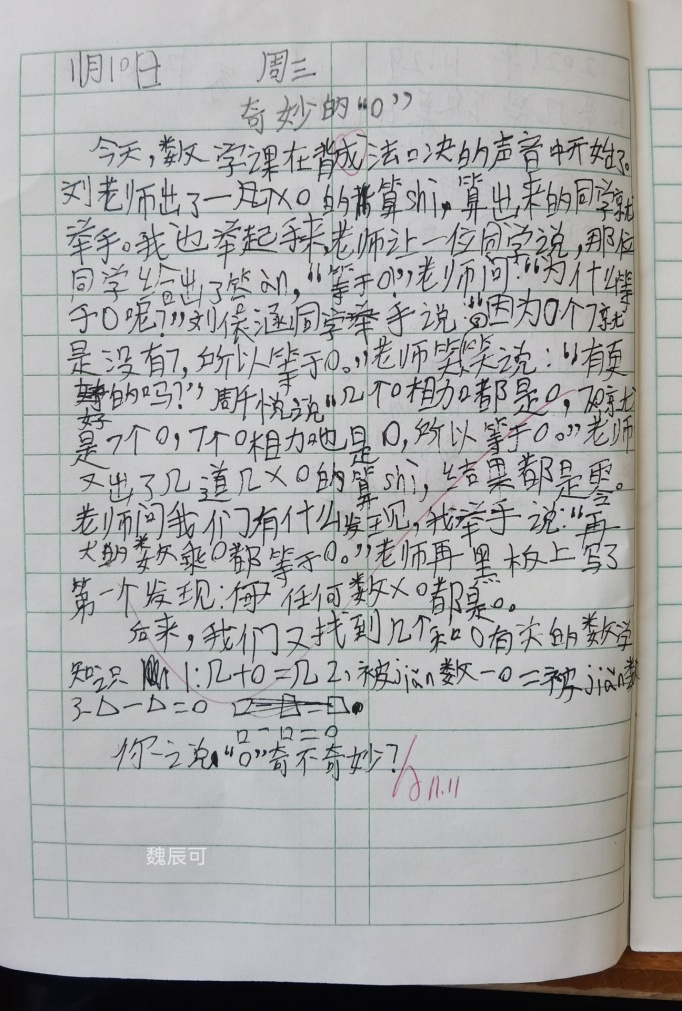 11月10日 周三
奇妙的“0”
今天,数学课在背成法口决的声音中开始了。
刘老师出了一凡7×0的算shi,算出来的同学就
举手。我也举起手来,老师让一位同学说,那位
同学给出了答an,“等于0!”老师问:“为什么等
于0呢?”刘俍涵同学举手说:“因为0个7就
是没有7,所以等于0。”老师笑笑说:“有更
好的吗?”周千悦说“几个0相加都是0,7×0就
是7个0,7个0相加也是0,所以等于0。”老师
又出了几道几×0的算shi,结果都是零。
老师问我们有什么发现,我举手说:“再
大的数乘0都等于0。”老师再黑板上写了
第一个发现:每任何数×0都是0。
后来,我们又找到几个和0有关的数学
知识 1:几+0=几 2、被jiǎn数-0=被jiǎn数
3.△-△=0
□-□=0
你之说“0”奇不奇妙?
11.11
魏辰可